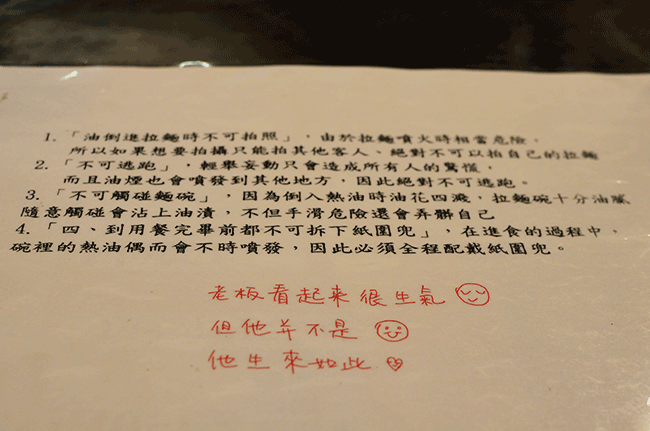 1.「油倒進拉麵時不可拍照」，由於拉麵噴火時相當危險，
所以如果想要拍攝只能拍其他客人、絕對不可以拍自己的拉麵
2.「不可逃跑」，輕舉妄動只會造成所有人的驚慌，
而且油煙也會噴發到其他地方，因此絕對不可逃跑。
3.「不可觸碰麵碗」，因為倒入熱油時油花四濺，拉麵碗十分油膩
隨意觸碰會沾上油漬，不但手滑危險還會弄髒自己
4.「四、到用餐完畢前都不可拆下紙圍兜」，在進食的過程中，
碗裡的熱油偶而會不時噴發，因此必須全程配戴紙圍兜。
老板看起来很生氣
但他并不是
他生來如此